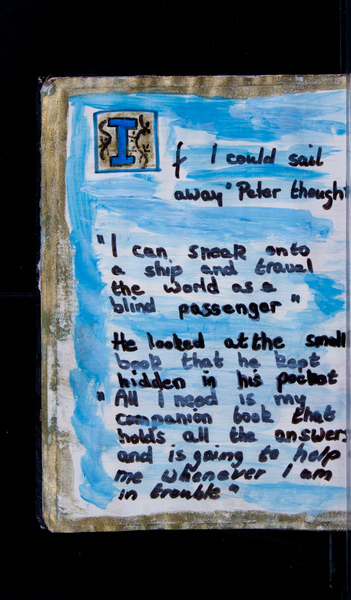 If I could sail
away" Peter thought
"I can sneak onto
a ship and travel
the world as a
blind passenger"
He looked at the small
book that he kept
hidden in his pocket
"All I need is my
companion book that
holds all the answers
and is going to help
me whenever I am
in trouble"